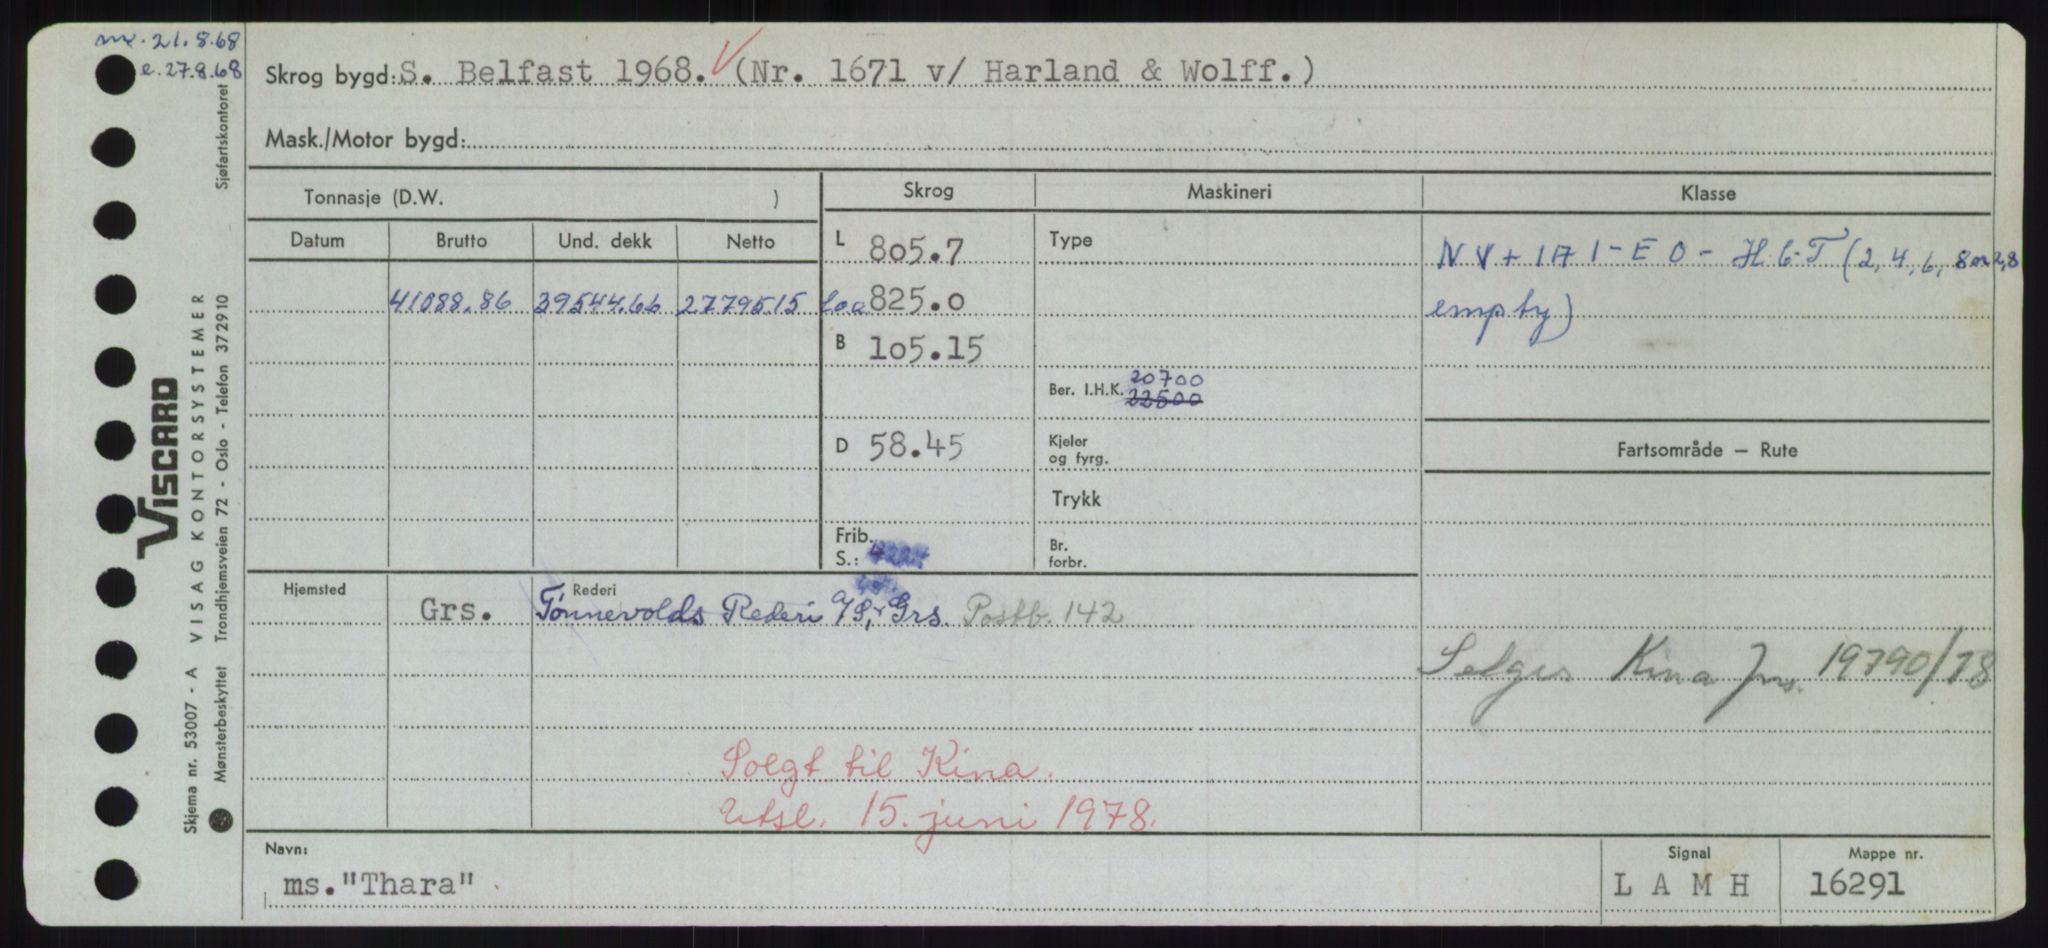 mr. 21.8.68
e. 27.8.68
Sjøfartskontoret
Skrog bygd: S. Belfast 1968. (Nr. 1671 v/ Harland & Wolff.)
Mask./Motor bygd:
Tonnasje (D.W. )
Skrog
Maskineri
Klasse
Datum
Brutto
Und. dekk
Netto
L 805.7
Type
NV + 1A1 - E0 - H.C-T (2, 4, 6, 8
41088.86 39544.66 27795.15
Loa 825.0
empty)
B 105.15
Ber. I.H.K. 20700
22500
D 58.45
Kjeler
og fyrg.
Fartsområde — Rute
Trykk
Frib.
S.:
Br.
forbr.
Hjemsted
Rederi
Grs. Tønnevolds Rederi A/S, Grs. Postb. 142
Selges Kina 1978
Solgt til Kina.
Utsl. 15. juni 1978.
Navn:
ms."Thara"
Signal
LAMH
Mappe nr.
16291
VISCARD
VISAG KONTORSYSTEMER
Skjema nr. 53007 - A
Mønsterbeskyttet Trondhjemsveien 72 - Oslo - Telefon 372910